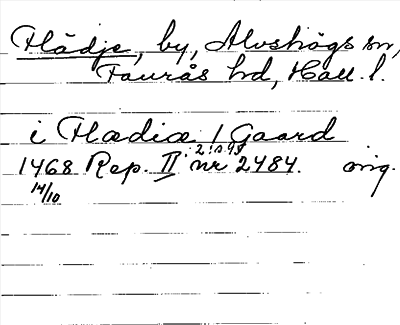 Flädje, by, Alvshögs sn,
Faurås hd, Hall. l.
i Flædiæ 1 Gaard
2:s.99
1468 Rep. II nr 2484. orig.
14/10